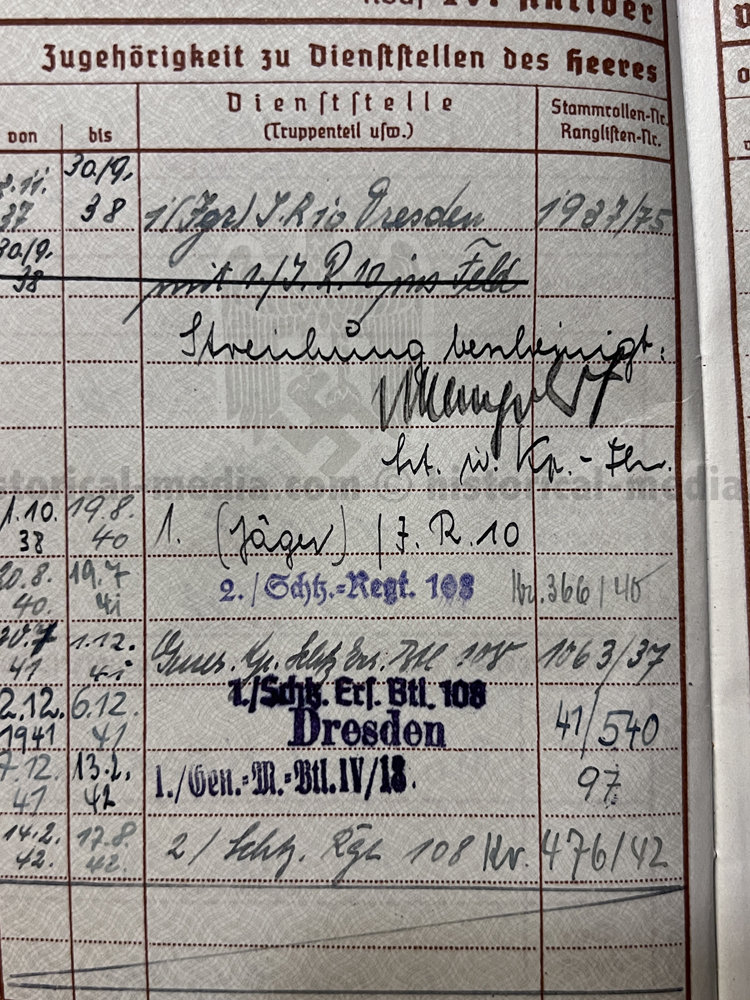 Noch IV. Aktiver
Zugehörigkeit zu Dienststellen des Heeres
von bis Dienststelle (Truppenteil usw.) Stammrollen-Nr. Ranglisten-Nr.
30/9.
37 38 1(Jgr) J.R 10 Dresden 1937/75
30/9.
38 mit 1./J.R.10 ins Feld
Streichung bescheinigt:
Lt. u. Kp.-Fhr.
1.10. 19.8.
38 40 1. (Jäger) / J.R.10
20.8. 19.7
40. 41 2./Schtz.=Regt. 108 Kr.366/40
20.7 1.12.
41 41 Genes. Kp. Schtz Ers. Btl 108 1063/37
2.12. 6.12.
1941 41 1./Schtz. Ers. Btl. 108 Dresden 41/540
7.12. 13.2.
41 42 1./Gen.=M.=Btl.IV/18. 97
14.2. 17.8.
42. 42. 2/ Schtz. Rgt 108 Kr. 476/42
historical-media.com © historical-media